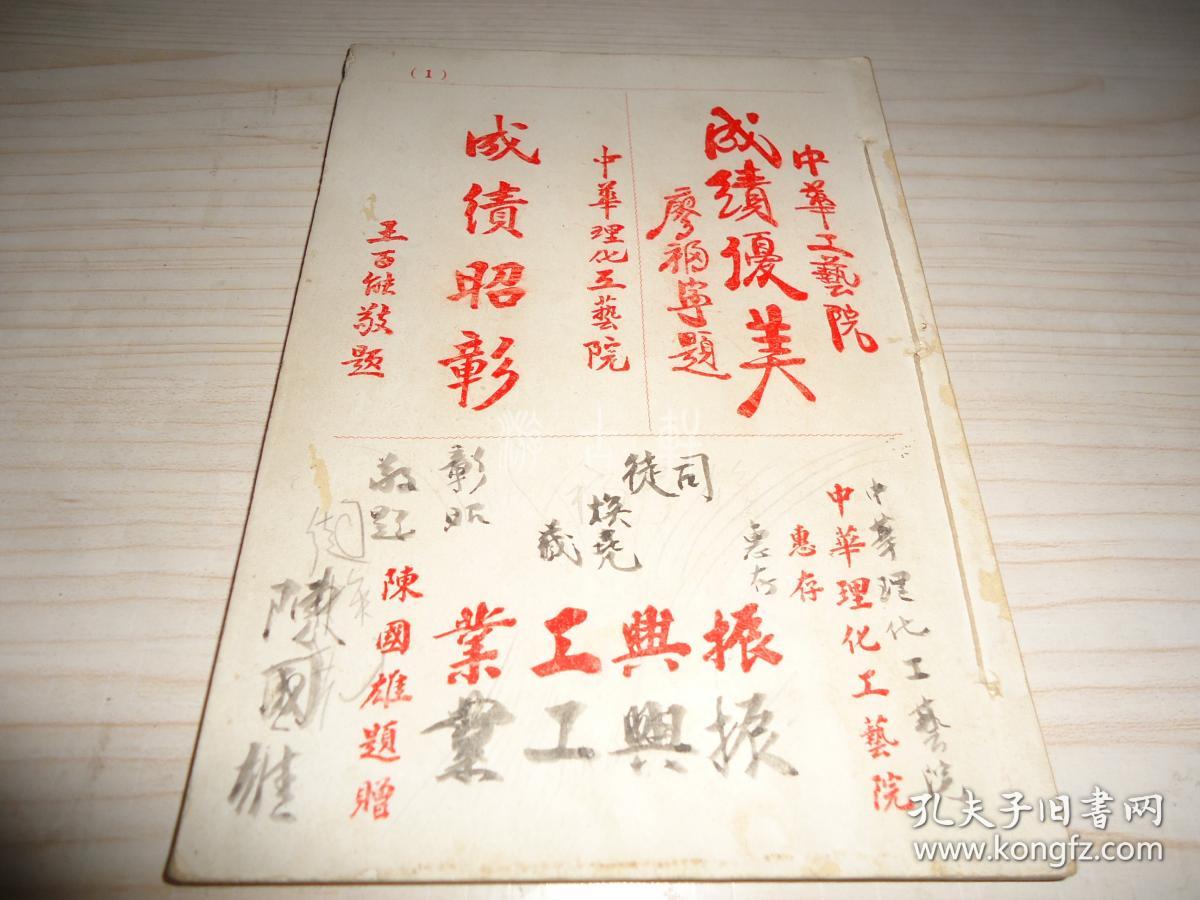 (1)
中華工藝院
成績優美
廖福寧題
中華理化工藝院
成績昭彰
王百能敬題
中華理化工藝院
中華理化工藝院
惠存
惠存
司徒
煥堯
藏
振興工業
振興工業
彰
陳國雄題贈
陳國雄
孔夫子旧书网
www.kongfz.com